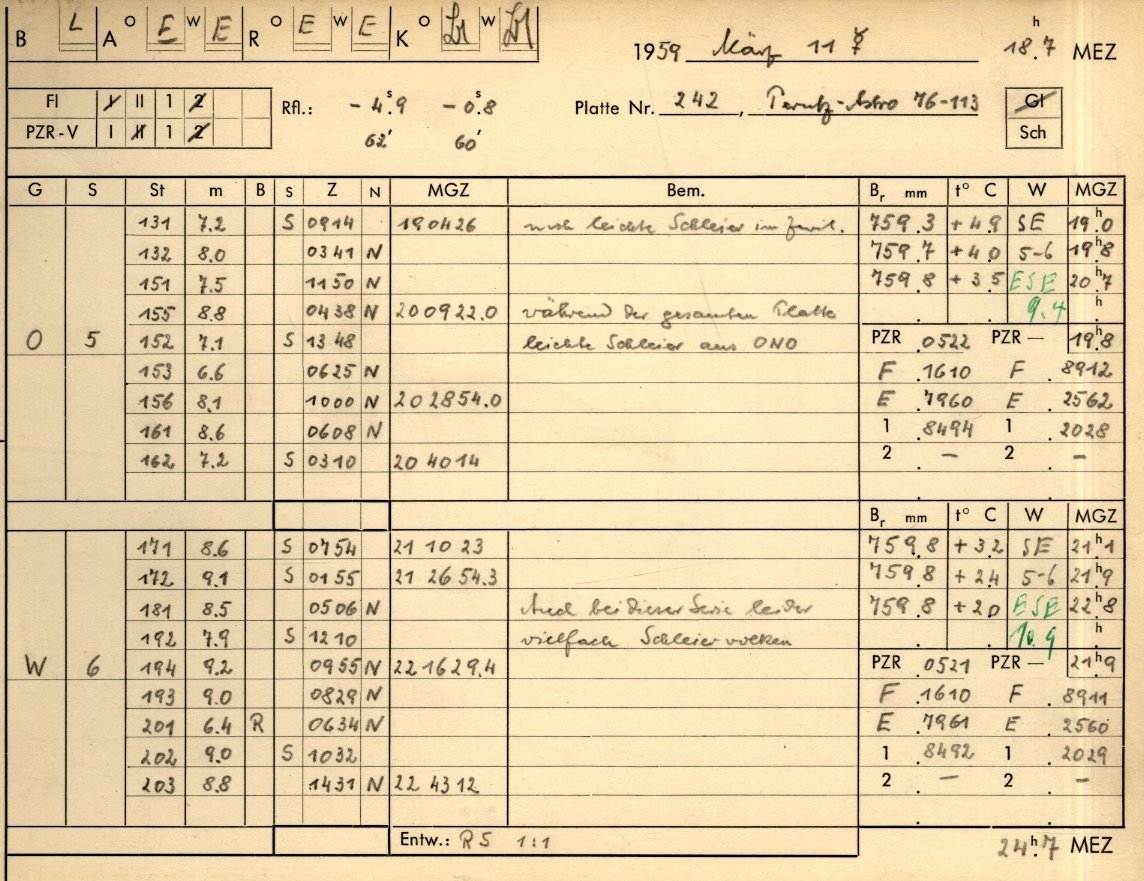 B L A O E W E R O E W E K O W
1959 März 11 ☿ 18.ʰ7 MEZ
FI I II 1 2
PZR-V I II 1 2
Rfl.: - 4.ˢ9 - 0.ˢ8
62' 60'
Platte Nr. 242, Perutz-Astro 76-113
Gl
Sch
G S St m B S Z N MGZ Bem. Bᵣ mm t° C W MGZ
131 7.2 S 0914 190426 noch leichte Schleier im Zenit. 759.3 +4.9 SE 19.ʰ0
132 8.0 0341 N 759.7 +4.0 5-6 19.ʰ8
151 7.5 1150 N 759.8 +3.5 ESE 20.ʰ7
155 8.8 0438 N 200922.0 während der gesamten Platte . . 9.4 . ʰ
O 5 152 7.1 S 1348 leichte Schleier aus ONO PZR .0522 PZR — 19.ʰ8
153 6.6 0625 N F .1610 F .8912
156 8.1 1000 N 202854.0 E .7960 E .2562
161 8.6 0608 N 1 .8494 1 .2028
162 7.2 S 0310 204014 2 . — 2 . —
Bᵣ mm t° C W MGZ
171 8.6 S 0754 21 10 23 759.8 +3.2 SE 21.ʰ1
172 9.1 S 0155 21 26 54.3 759.8 +2.4 5-6 21.ʰ9
181 8.5 0506 N Auch bei dieser Serie leider 759.8 +2.0 ESE 22.ʰ8
192 7.9 S 1210 vielfach Schleierwolken . . 10.9 . ʰ
W 6 194 9.2 0955 N 22 16 29.4 PZR .0521 PZR — 21.ʰ9
193 9.0 0829 N F .1610 F .8911
201 6.4 R 0634 N E .7961 E .2560
202 9.0 S 1032 1 .8492 1 .2029
203 8.8 1431 N 22 43 12 2 . — 2 . —
Entw.: R5 1:1
24.ʰ7 MEZ